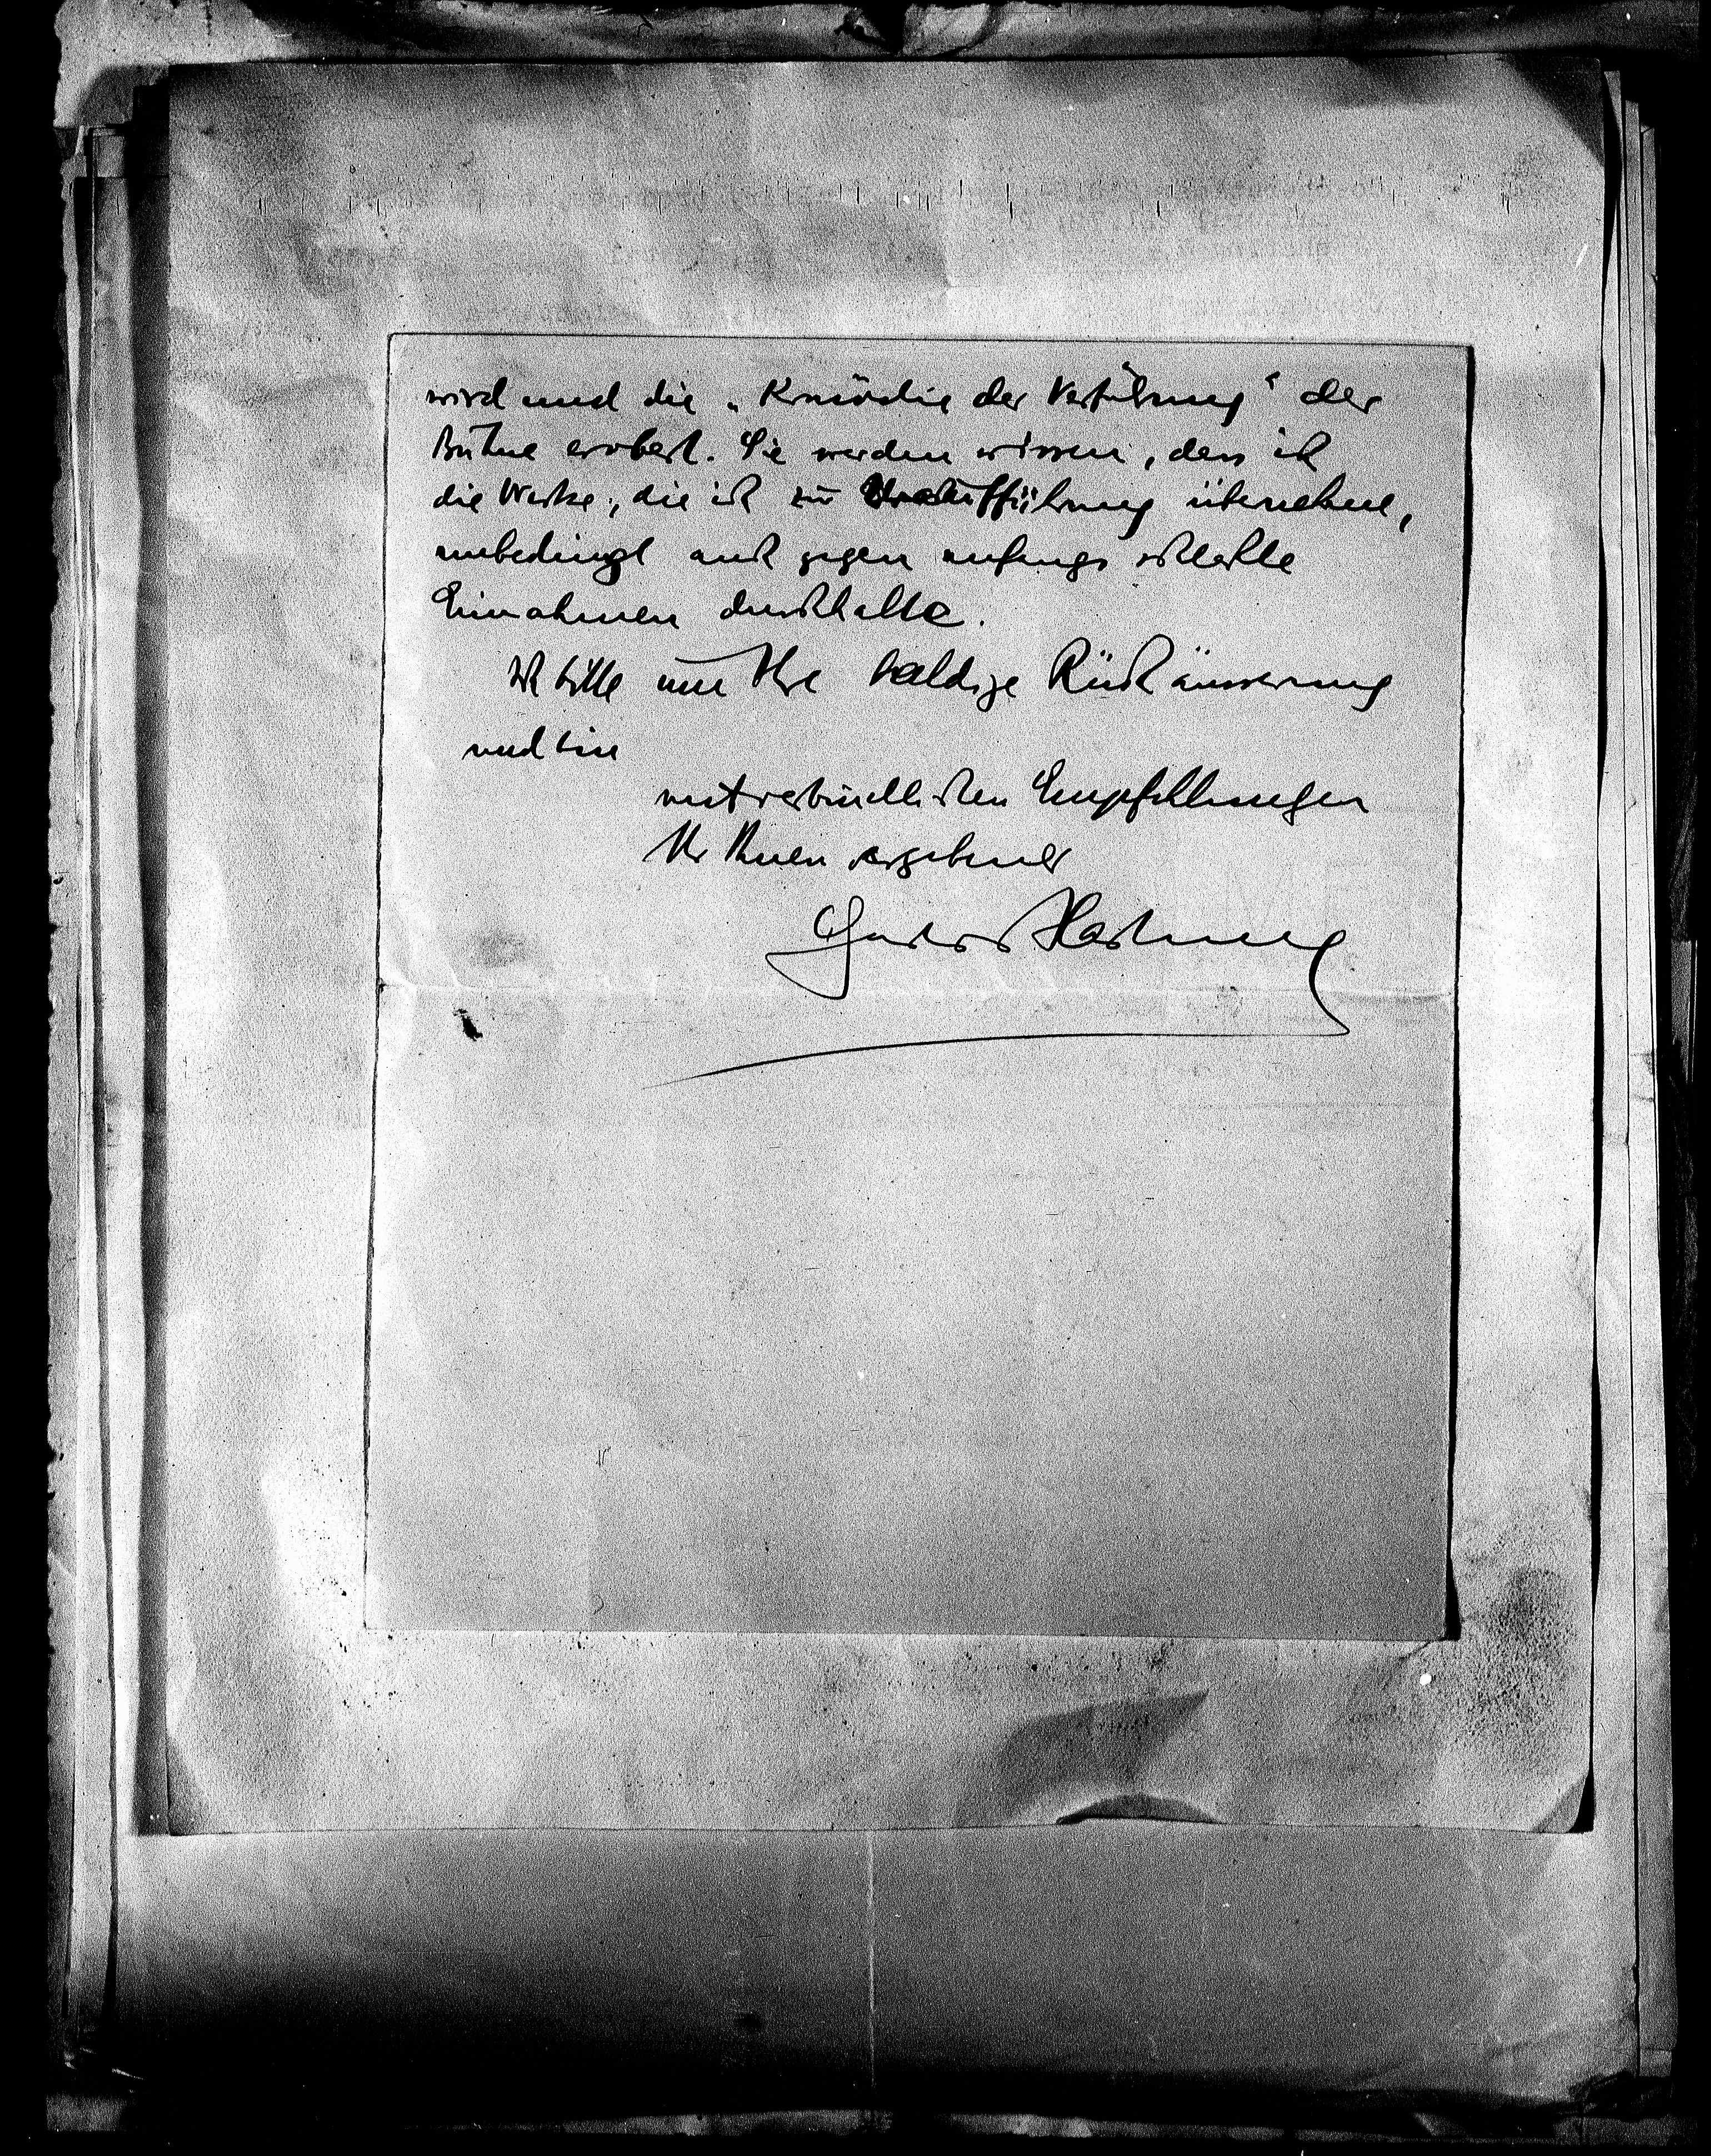 wird und die „Komödie der Verführung“ der
Bühne erobert. Sie werden wissen, dass ich
die Werke, die ich zur Uraufführung übernehme,
unbedingt auch gegen anfangs schlechte
Einnahmen durchhalte.
Ich bitte um Ihre baldige Rückäusserung
und bin
mit verbindlichsten Empfehlungen
Ihr Ihnen ergebener
Gustav Hartung